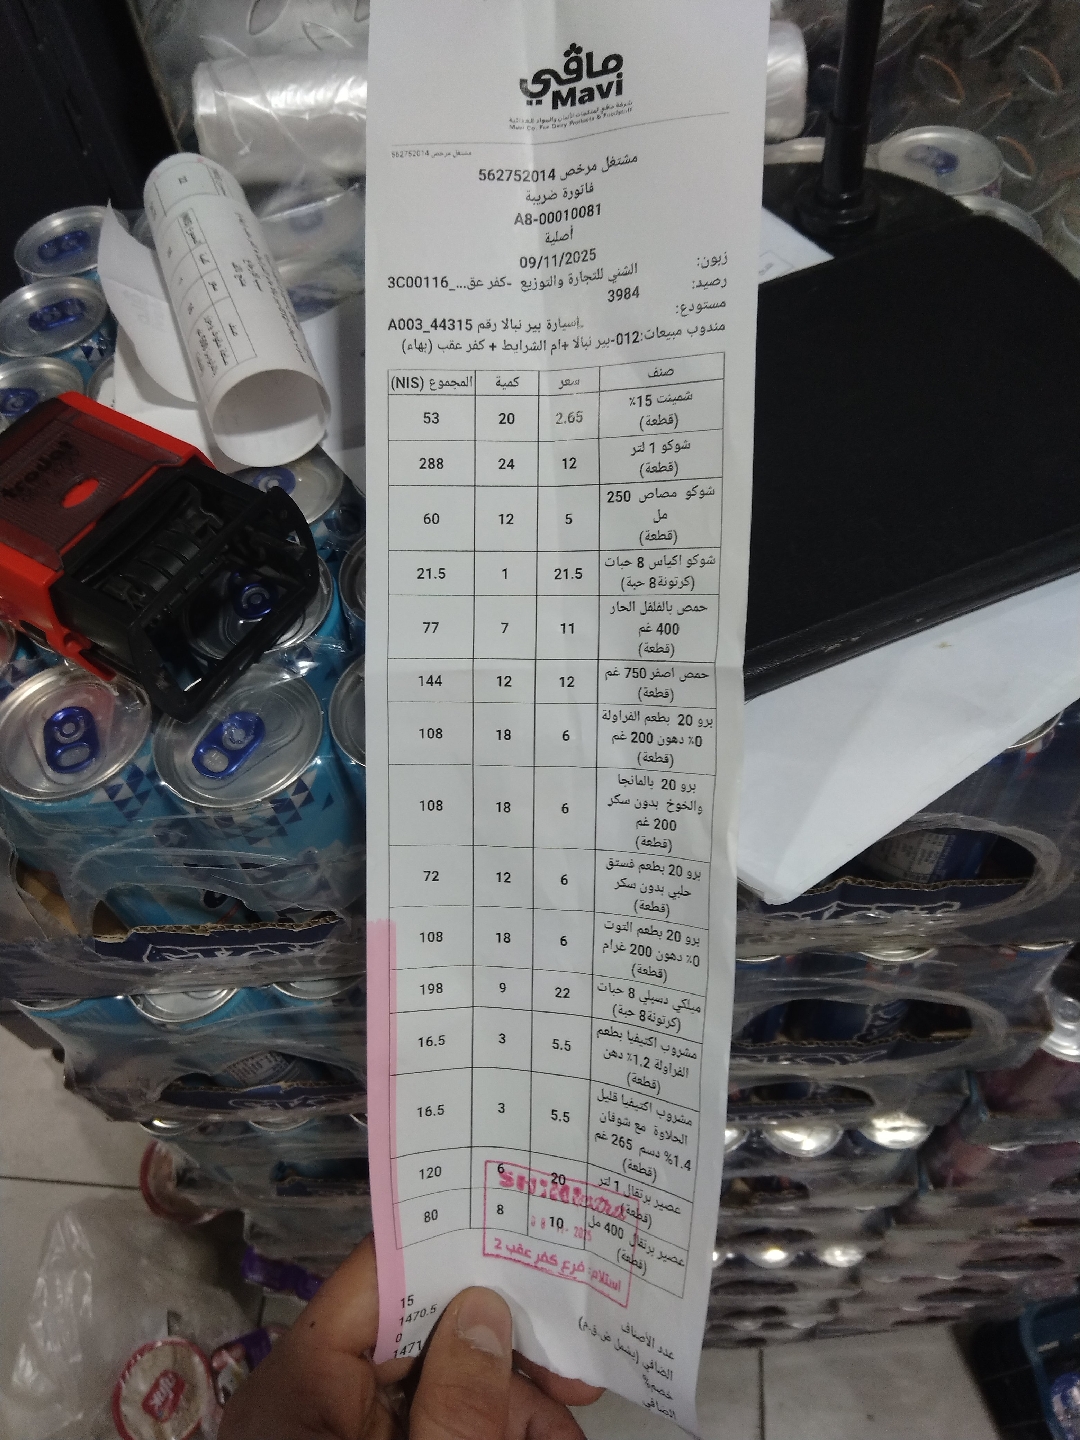 ماڤي
Mavi
شركة مافي لمنتجات الألبان والمواد الغذائية
Mavi Co. For Dairy Products & Foodstuff
مشتغل مرخص 562752014
مشتغل مرخص 562752014
فاتورة ضريبة
A8-00010081
أصلية
09/11/2025
زبون: الشني للتجارة والتوزيع -كفر عق..._3C00116
رصيد: 3984
مستودع: سيارة بير نبالا رقم A003_44315
مندوب مبيعات:012-بير نبالا +ام الشرايط + كفر عقب (بهاء)
صنف سعر كمية المجموع (NIS)
شمينت 15٪ 2.65 20 53
(قطعة)
شوكو 1 لتر 12 24 288
(قطعة)
شوكو مصاص 250
مل 5 12 60
(قطعة)
شوكو اكياس 8 حبات 21.5 1 21.5
(كرتونة8 حبة)
حمص بالفلفل الحار
400 غم 11 7 77
(قطعة)
حمص اصفر 750 غم 12 12 144
(قطعة)
برو 20 بطعم الفراولة
0٪ دهون 200 غم 6 18 108
(قطعة)
برو 20 بالمانجا
والخوخ بدون سكر 6 18 108
200 غم
(قطعة)
برو 20 بطعم فستق
حلبي بدون سكر 6 12 72
(قطعة)
برو 20 بطعم التوت
0٪ دهون 200 غرام 6 18 108
(قطعة)
ميلكي دسيلي 8 حبات 22 9 198
(كرتونة8 حبة)
مشروب اكتيفيا بطعم
الفراولة 1.2٪ دهن 5.5 3 16.5
(قطعة)
مشروب اكتيفيا قليل
الحلاوة مع شوفان 5.5 3 16.5
1.4% دسم 265 غم
(قطعة)
عصير برتقال 1 لتر 20 6 120
(قطعة)
عصير برتقال 400 مل 10 8 80
(قطعة)
استلام: فرع كفر عقب 2
عدد الأصناف 15
الصافي (يشمل ض.ق.م) 1470.5
خصم% 0
الصافي 1471
trodat